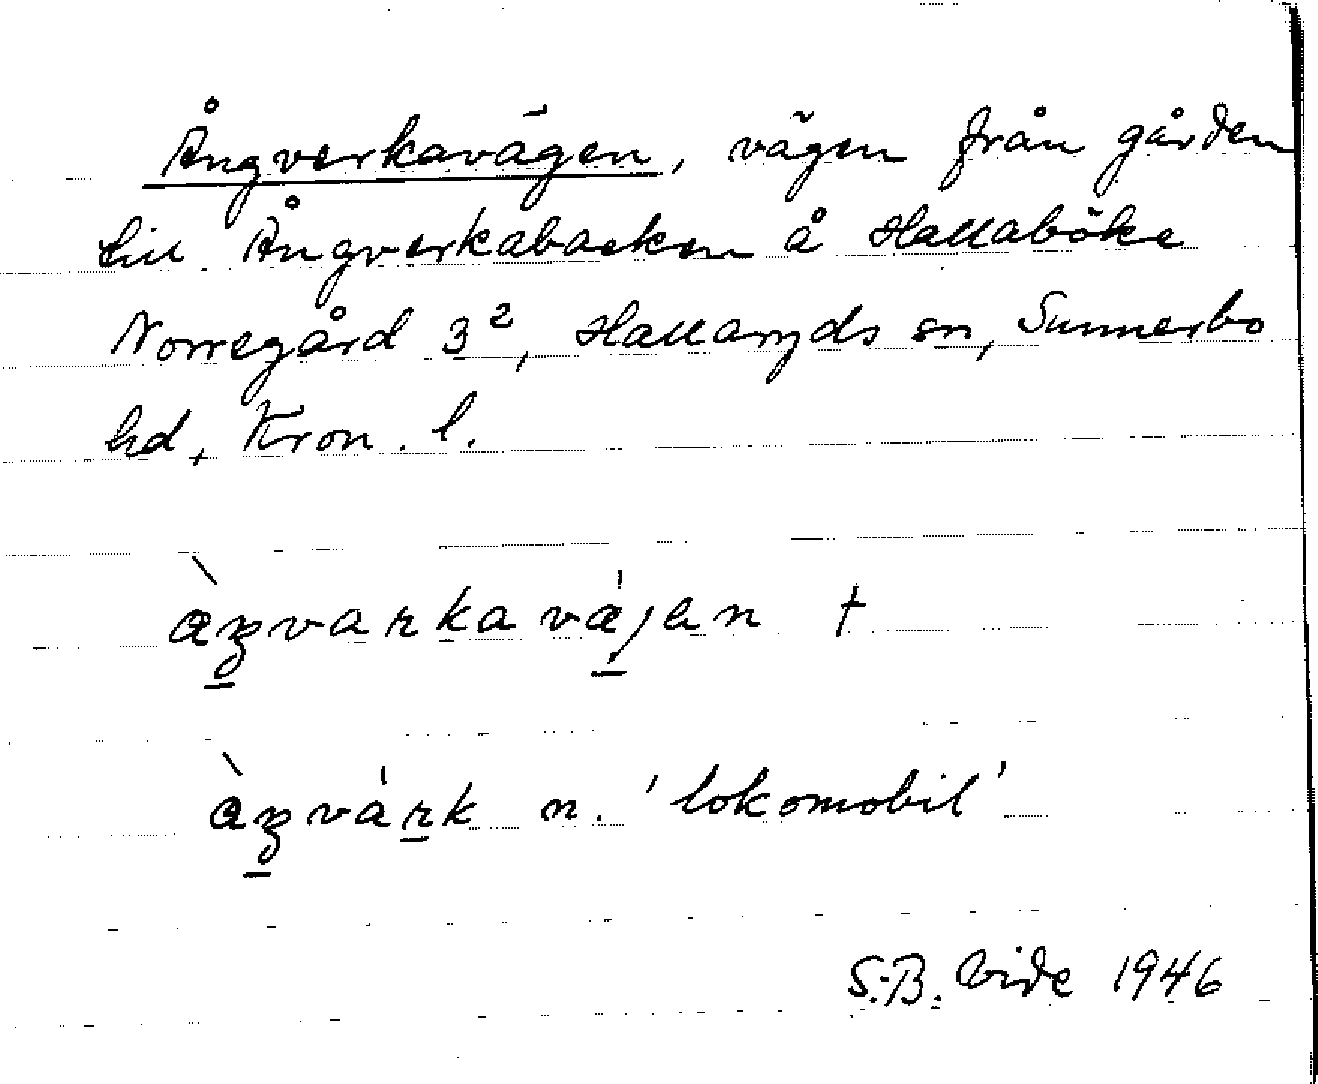 Ångverkavägen, vägen från gården
till Ångverkabacken å Hallaböke
Norregård 3², Hallaryds sn, Sunnerbo
hd, Kron. l.
àŋvarkavájan †
àŋvárk n. 'lokomobil'
S.-B. Vide 1946